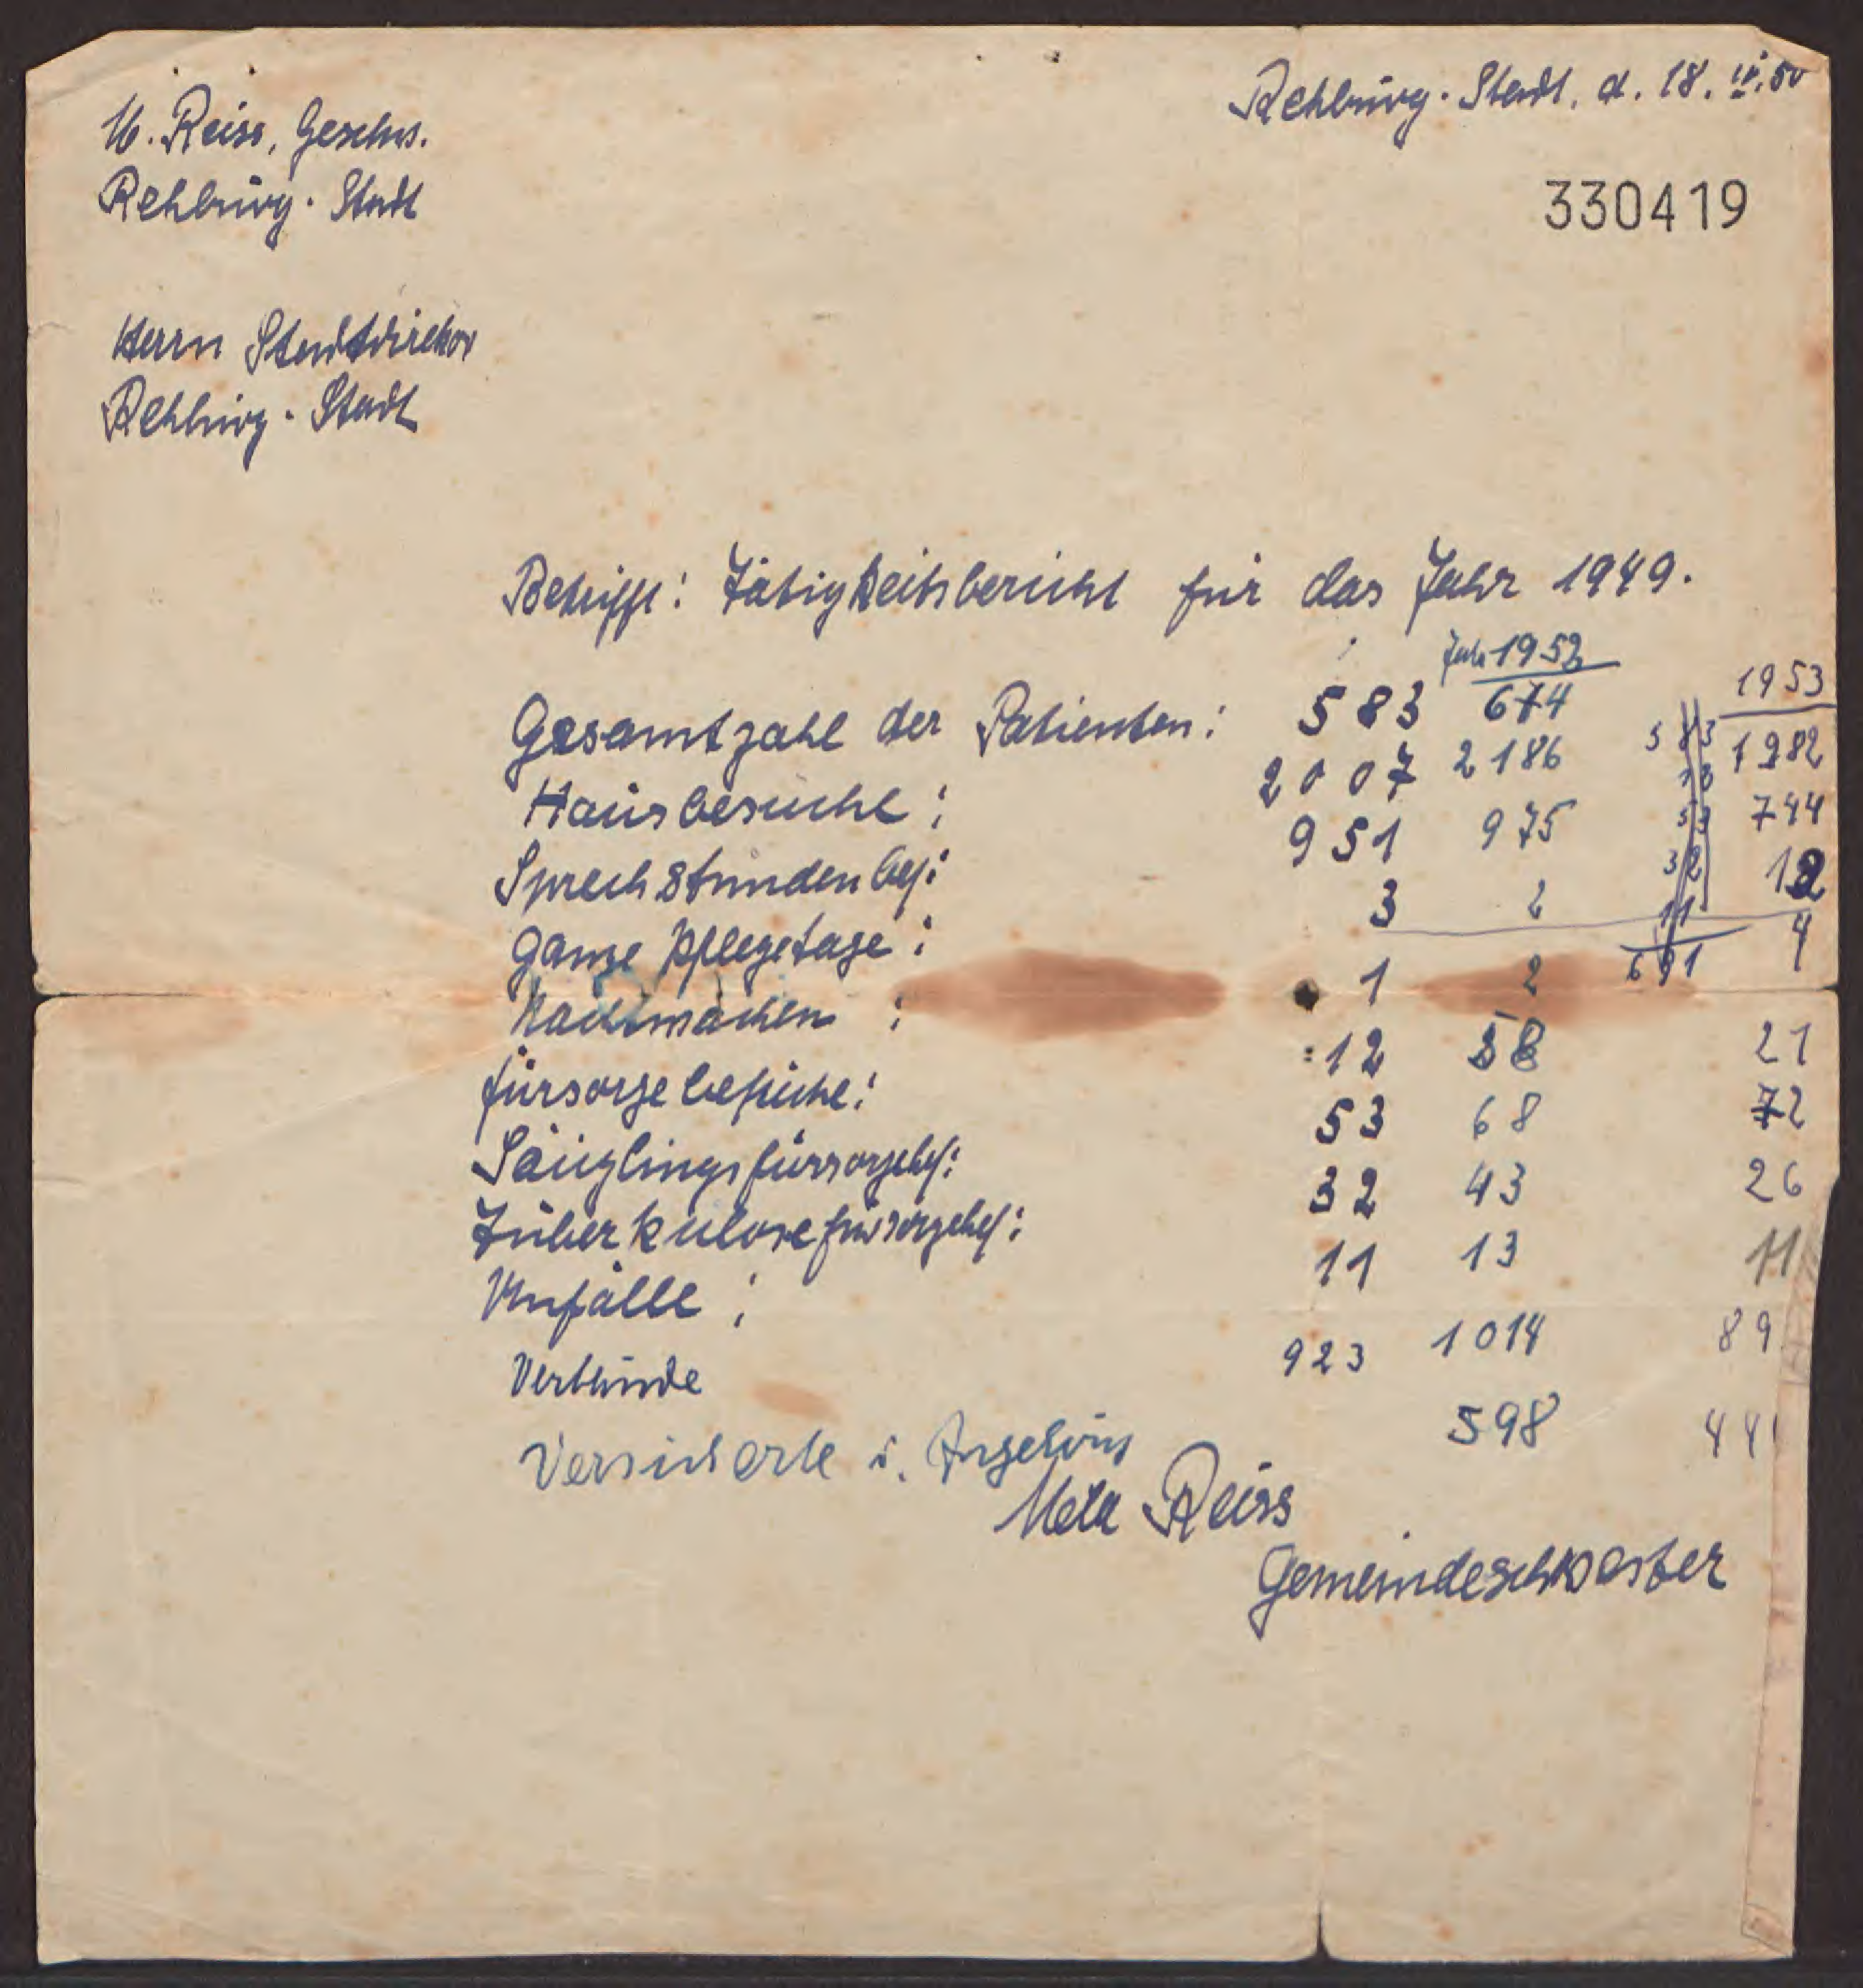 Rehburg-Stadt, d. 18. III. 50
M. Reiss, Geschws.
Rehburg-Stadt
330419
Herrn Stadtdirektor
Rehburg-Stadt
Betrifft: Tätigkeitsbericht für das Jahr 1949.
Jahr 1952
1953
Gesamtzahl der Patienten: 583 674 583
Hausbesuche: 2007 2186 13 1982
Sprechstundenbes: 951 975 53 744
Ganze Pflegetage: 3 2 32 12
11
Nachtwachen: 1 2 691 4
Fürsorgebesuche: 12 58 21
Säuglingsfürsorgebes: 53 68 72
Tuberkulosefürsorgebes: 32 43 26
Unfälle: 11 13 11
Verbände 923 1014 89
Versicherte u. Angehörig 598 44
Meta Reiss
Gemeindeschwester